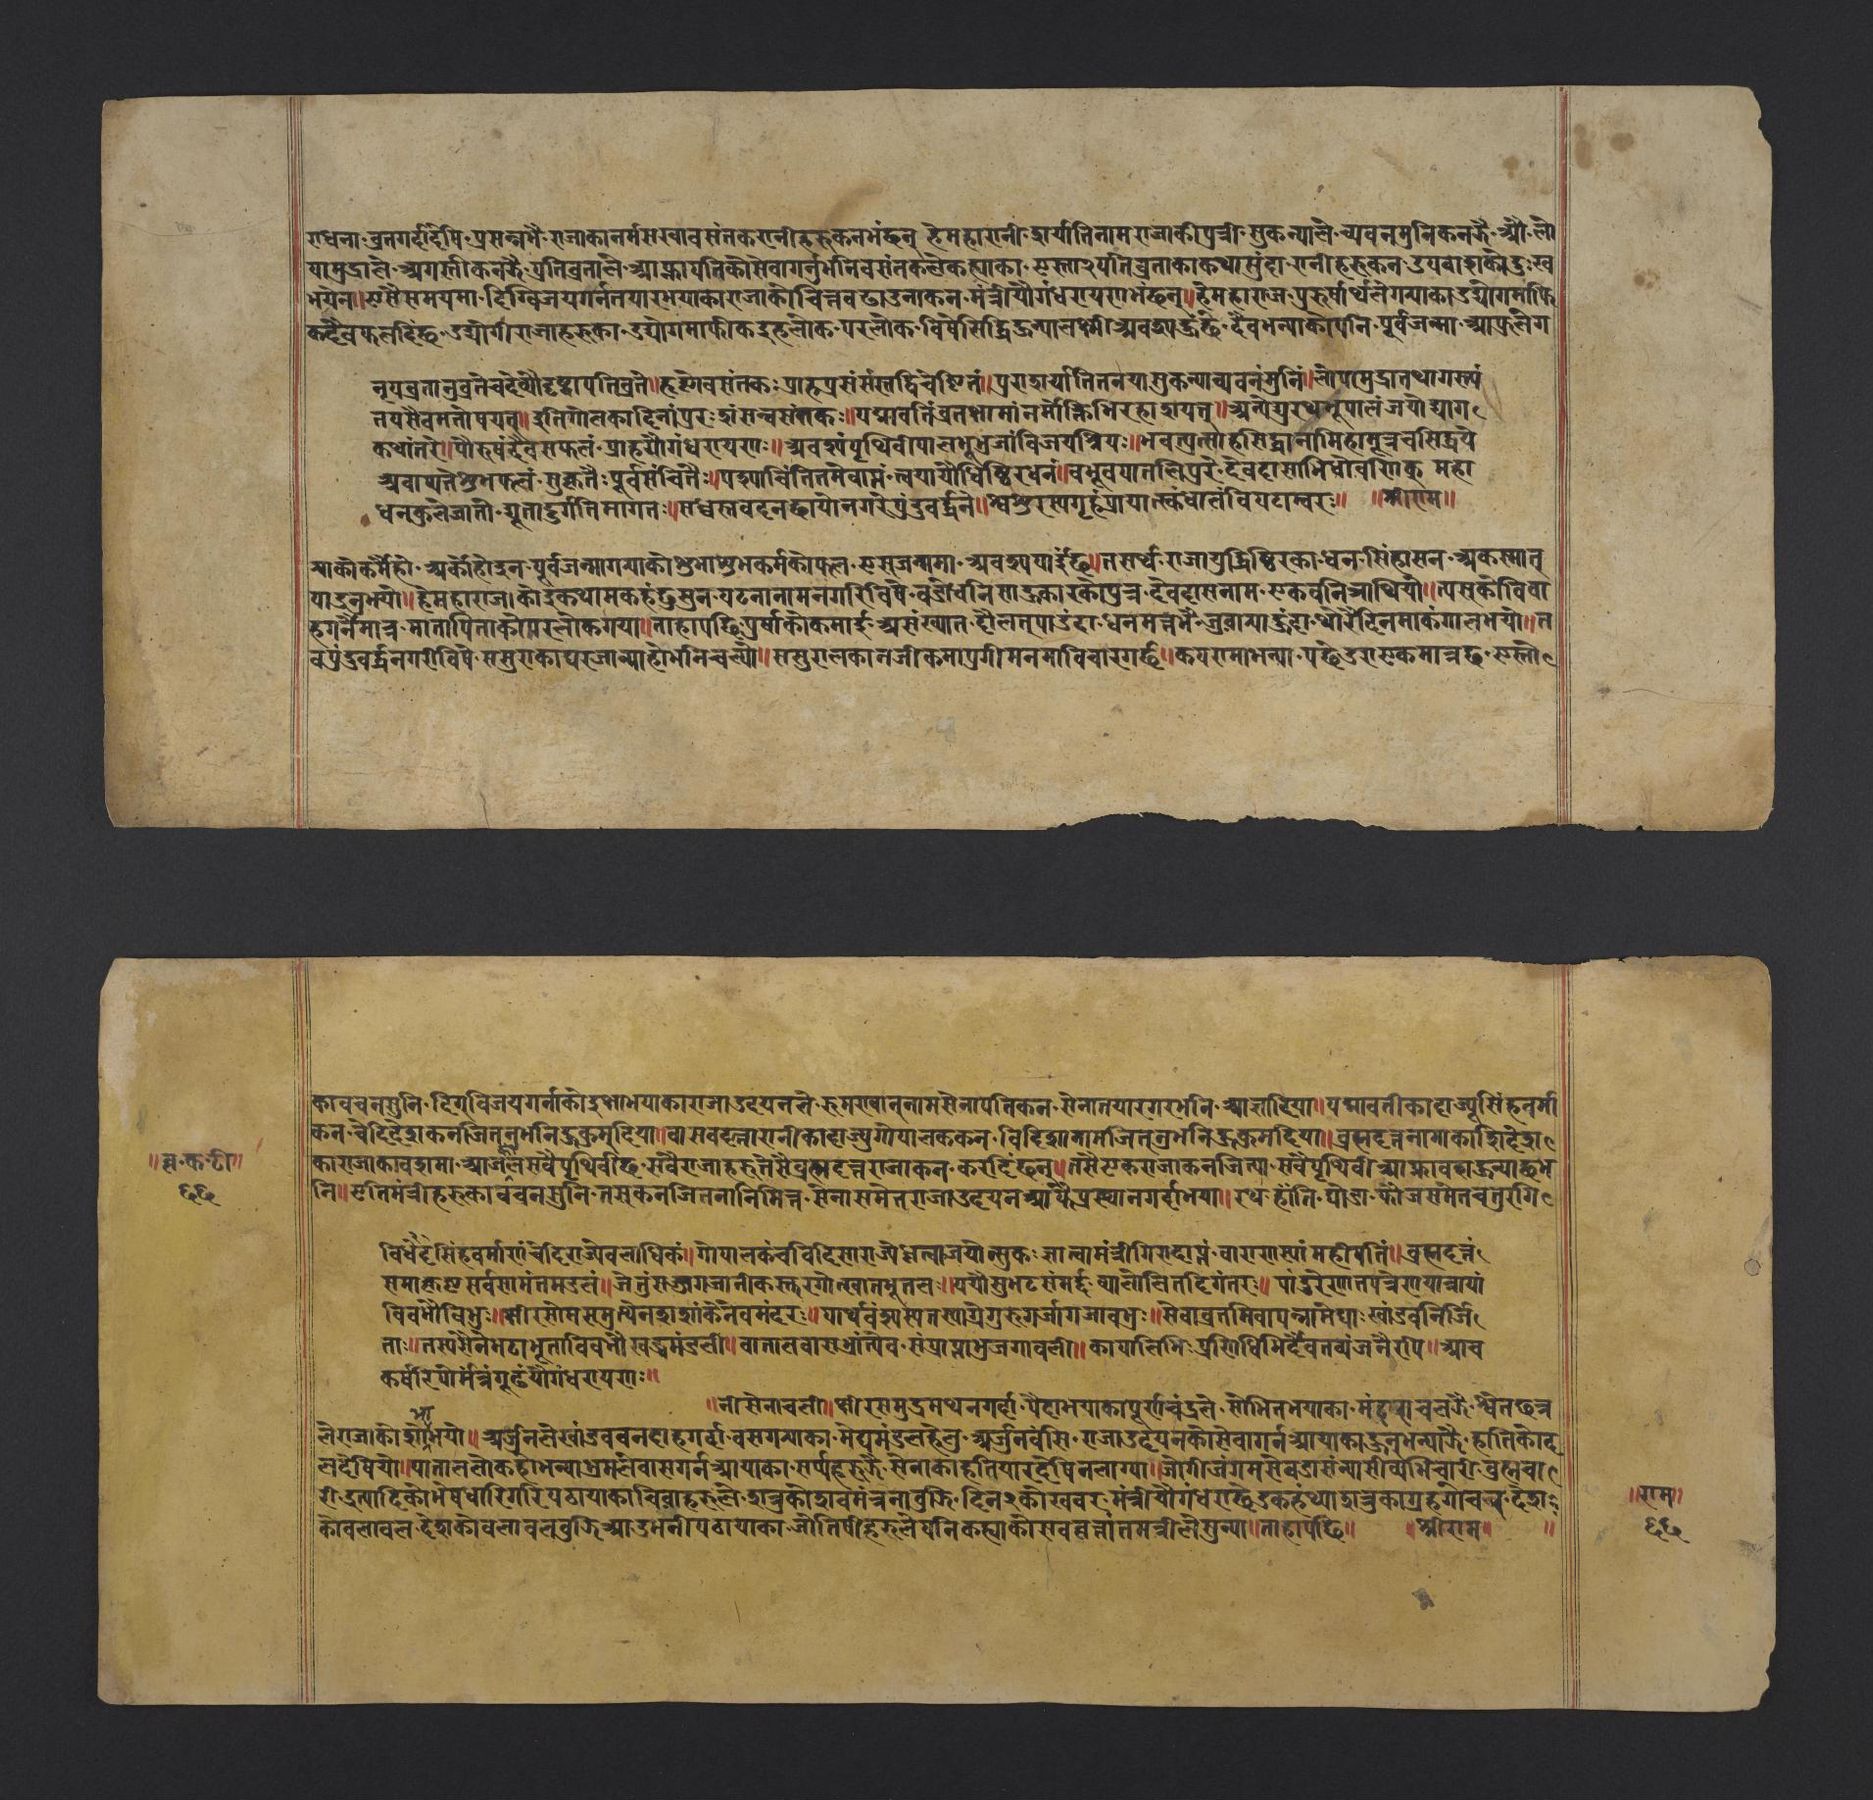 राधना व्रतगर्दादेषि प्रसन्नभै राजाकानर्मसखावसंतकरानीहरूकनभंछन् हेमहारानी शर्यातिनाम राजाकीपुत्री सुकन्याले च्यवनमुनिकनझै औ लो
यामुद्राले अगस्तीकनझै प्रतिव्रताले आफ्नापतिकोसेवागर्नुभनिवसंतकलेकह्याका एस्ता२पतिव्रताकाकथासुंदा रानीहरूकन उपवाशको दुःख
भयेन॥ एसैसमयमा दिग्विजयगर्नतयारभयाकाराजाकोचित्तवढाउनाकन मंत्रीयौगंधरायणभंछन्॥ हेमहाराज पुरूषार्थलेगर्‍याकाउद्योगमाफि
कदैवफलदिंछ उद्योगीराजाहरूका उद्योगमाफीकइहलोक परलोक विषेसिद्धिहुन्यालक्ष्मीअवश्यहुंछे दैवभन्याकोपनि पूर्वजन्मा आफूलेग
नृपव्रतानुव्रतेचदेव्यौदृष्ट्वापतिव्रते॥ हृष्टेवसंतकः प्राहप्रसंसंस्तद्विचेष्टितं॥ पुराशर्यातितनयासुकन्याच्यवनंमुनिं॥ लोपामुद्रातथागस्त्यं
नयसैवमतोषयत्॥ इतिगोलकादिनांपुरःशंसन्वसंतकः॥ पद्मावतिंव्रतक्षामांनर्मोक्तिभिरहाशयत्॥ अन्येद्युरथभूपालंजयोद्योग
कथांतरे॥ पौरुषंदैवसफलं प्राहयौगंधरायणः॥ अवश्यंपृथिवीपालभूभुजांविजयश्रियः॥ भवत्युत्साहसिद्धानामिहामुत्रचसिद्धये
अवाप्यतेशुभफलं सुकृतैः पूर्वसंचितैः॥ पश्याचिंतितमेवाप्तं त्वयायौधिष्ठिरधनं॥ वभूवपाटलिपुरे देवदासाभिधोवणिक् महा
धनकुलेजातो द्यूताद्दुर्गतिमागतः॥ सध्वस्तवदनछायोनगरेपुंड्रवर्द्धने॥ श्वशुरस्यगृहंप्रायात्स्कंधालंविपटाम्वरः॥ ॥श्रीराम॥
याकोकर्मैहो अर्कोहोइन पूर्वजन्मागर्‍याकोशुभाशुभकर्मकोफल एसजन्ममा अवश्यपाईंछ॥ तसर्थ राजायुद्धिष्ठिरका धन सिंहासन अकस्मात्
पाउनुभयो॥ हेमहाराज कोइकथामकहंछुसुन पटनानामनगरिविषे वडोधनिसाहूकारकोपुत्र देवदासनाम एकवनिञाथियो॥ त्यसकोविवा
हगर्नेमात्र मातापिताकोपरलोकगया॥ ताहापछिपुर्षाकोकमाई असंख्यात दौलत्पाउंदा धनमत्तभै जुवाप्याहूंदा थोरैदिनमाकंगालभयो॥ त
वपुंड्रवर्द्धनगरीविषे ससुराकाघरजान्याहोभनिचल्यो॥ ससुरालकानजीकमापुगीमनमाविचारगर्छ॥ कपरामाभन्या पछेउराएकमात्रछ एस्तो
कावचनसुनि दिग्विजयगर्नाकोइक्षाभयाकाराजाउदयनले रुमण्वान्नामसेनापतिकन सेनातयारगरभनि आज्ञादिया॥ पद्मावतीकादाज्यूसिंहवर्मा
कन चेदिदेशकनजित्नुभनिहुकुम्दिया॥ वासवदत्तारानीकादाज्युगोपालककन विदिशानामजित्नुभनिहुकुमदिया॥ ब्रह्मदत्तनामाकाशिदेश
काराजाकावशमा आजुलेसवैपृथिवीछ सवैराजाहरूलेसैव्रह्मदत्तराजाकन करदिंछन्॥ तसैएकराजाकनजित्या सवैपृथिवी आफ्नावशहुन्याछभ
नि॥ एतिमंत्रीहरूकावचनसुनि तसकनजितनानिमित्त सेनासमेतराजाउदयनआफैप्रस्थानगर्दाभया॥ रथ हात्ति घोडा फौजसमेतचतुरंगि
विधेदेसिंहवर्माणंचेदिराज्येवलाधिकं॥ गोपालकंचविदिसाराज्येधृत्वाजयोत्सुकः ज्ञात्वामंत्रीगिरादाप्तं वाराणस्यांमहीपतिं॥ व्रह्मदत्तं
समाकृष्टसर्वसामंतमंडलं॥ जेतुंसज्जगजानीकस्तुरगोत्खातभूतलः॥ ययौसुभटसंमर्द्द व्यालोलितदिगंतरः॥ पांडुरेणातपत्रेणयात्रायां
विवभौविभुः॥ क्षीरसोमसमुत्थेनशशांकेनेवमंदरः॥ पार्थवंश्यस्य
ताः॥ तस्यसैनेभटाभूताविवभौखड्गमंडली॥ पातालवासभ्रांत्यैव संप्राप्ताभुजगावली॥ कापालिभिः प्रणिधिभिर्दैवतव्यंजनैरपि॥ आच
कर्षरिपोर्मंत्रंगूढंयौगंधरायणः॥
॥नीसेनाचली॥ क्षीरसमुद्रमथनगर्दा पैदाभयाकापूर्णचंद्रले सोभितभयाका मंदराचलझै श्वेतछत्र
लेराजाकोशोभाभयो॥ अर्जुनलेखांडववनदाहगर्दा वसगर्‍याका मेघमंडलहेतु अर्जुनवंसि राजाउदयनकोसेवागर्नआयाकाहुनुभन्याझै हात्तिकोद
लदेषियो॥ पाताललोकहोभन्याभ्रमलेवासगर्नआयाका सर्पहरूझै सेनाकाहतियारदेषिनलाग्या॥ जोगीजंगमसेवडासंन्यासीव्यभिचारी व्रह्मचा
री इत्यादिकोभेषधारिगरिपठायाकाचिवाहरूले शत्रुकोशवमंत्रनावुझि दिन२कोखवर मंत्रीयौगंधराछेउकहंथ्याशत्रुकाग्रहगोचल् देश
कोवलावल देशकोवलावलवुझिआउभनीपठायाका जोतिषीहरूलेपनिकह्याकोसववृत्तांतमंत्रीलेसुन्या॥ ताहापछि॥ ॥श्रीराम॥ ॥
॥वृ॰क॰टी॰॥
६६
॥राम॥
६६